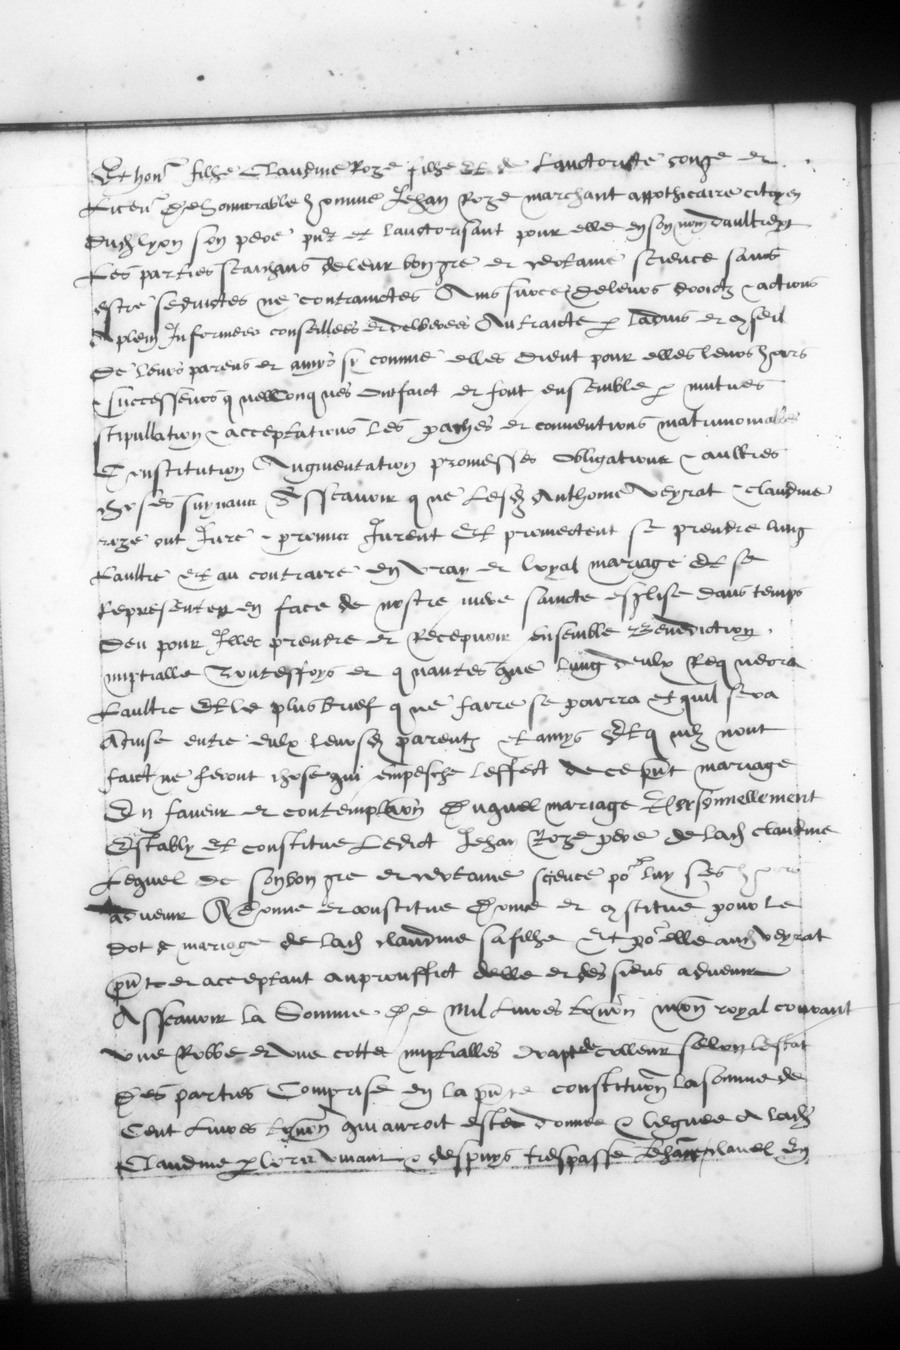 Et hon^e filhe Claudine Roze filhe et de lauctorite conge et
licence de honnorable homme Jehan Roze marchant appothicaire citoyen
dud lyon son pere pnt et lauctorisant pour elle en son nom daultre pt
Les parties seachans de leur bon gre et certaine science sans
estre seduictes ne contrainctes Ains sur ce de leurs droictz & actions
A plein Informees conseillees et deliberees Au traicte p ladvis et conseil
De leurs parens et amys sy comme elles dient pour elles leurs hoirs
& successeurs quelconques ont faict et font ensemble p mutues
stipullation & acceptations les paches et conventions matrimonialles
Constitution Augmentation promesses obligations & aultres
choses suyvans Assavoir que lesd Anthoine Veyrat & claudine
roze ont Jure & promis Jurent et promectent se prendre lung
laultre et au contraire en vray et loyal mariage et se
representer en face de nostre mere saincte esglise dans temps
deu pour Illec prendre et recepvoir ensemble Benediction
nuptialle Toutesfoys et quantes que lung deulx Requerra
Laultre et le plus brief que faire se pourra et quil sera
Advise entre eulx leursd parentz et amys Et quilz nont
faict ne feront chose qui empesche leffect de ce pnt mariage
En faveur et contemplaon duquel mariage Personnellement
Estably et constitue Ledict Jehan Roze pere de lad claudine
Lequel de son bon gre et certaine science por luy ses hoirs
advenir A donne et constitue donne et constitue pour le
dot de mariage de lad claudine sa filhe Et por elle aud veyrat
pnt et acceptant au prouffict delle et des siens advenir
Assavoir la Somme de Mil livres tournois monn royal courant
une Robbe et une cotte nuptialles drapt de colleur selon lestat
Des parties Comprise en la pnte constitution la somme de
Cent livres tournois qui auroit estee donnee & leguee A lad
Claudine p vivant & despuys trespasse En